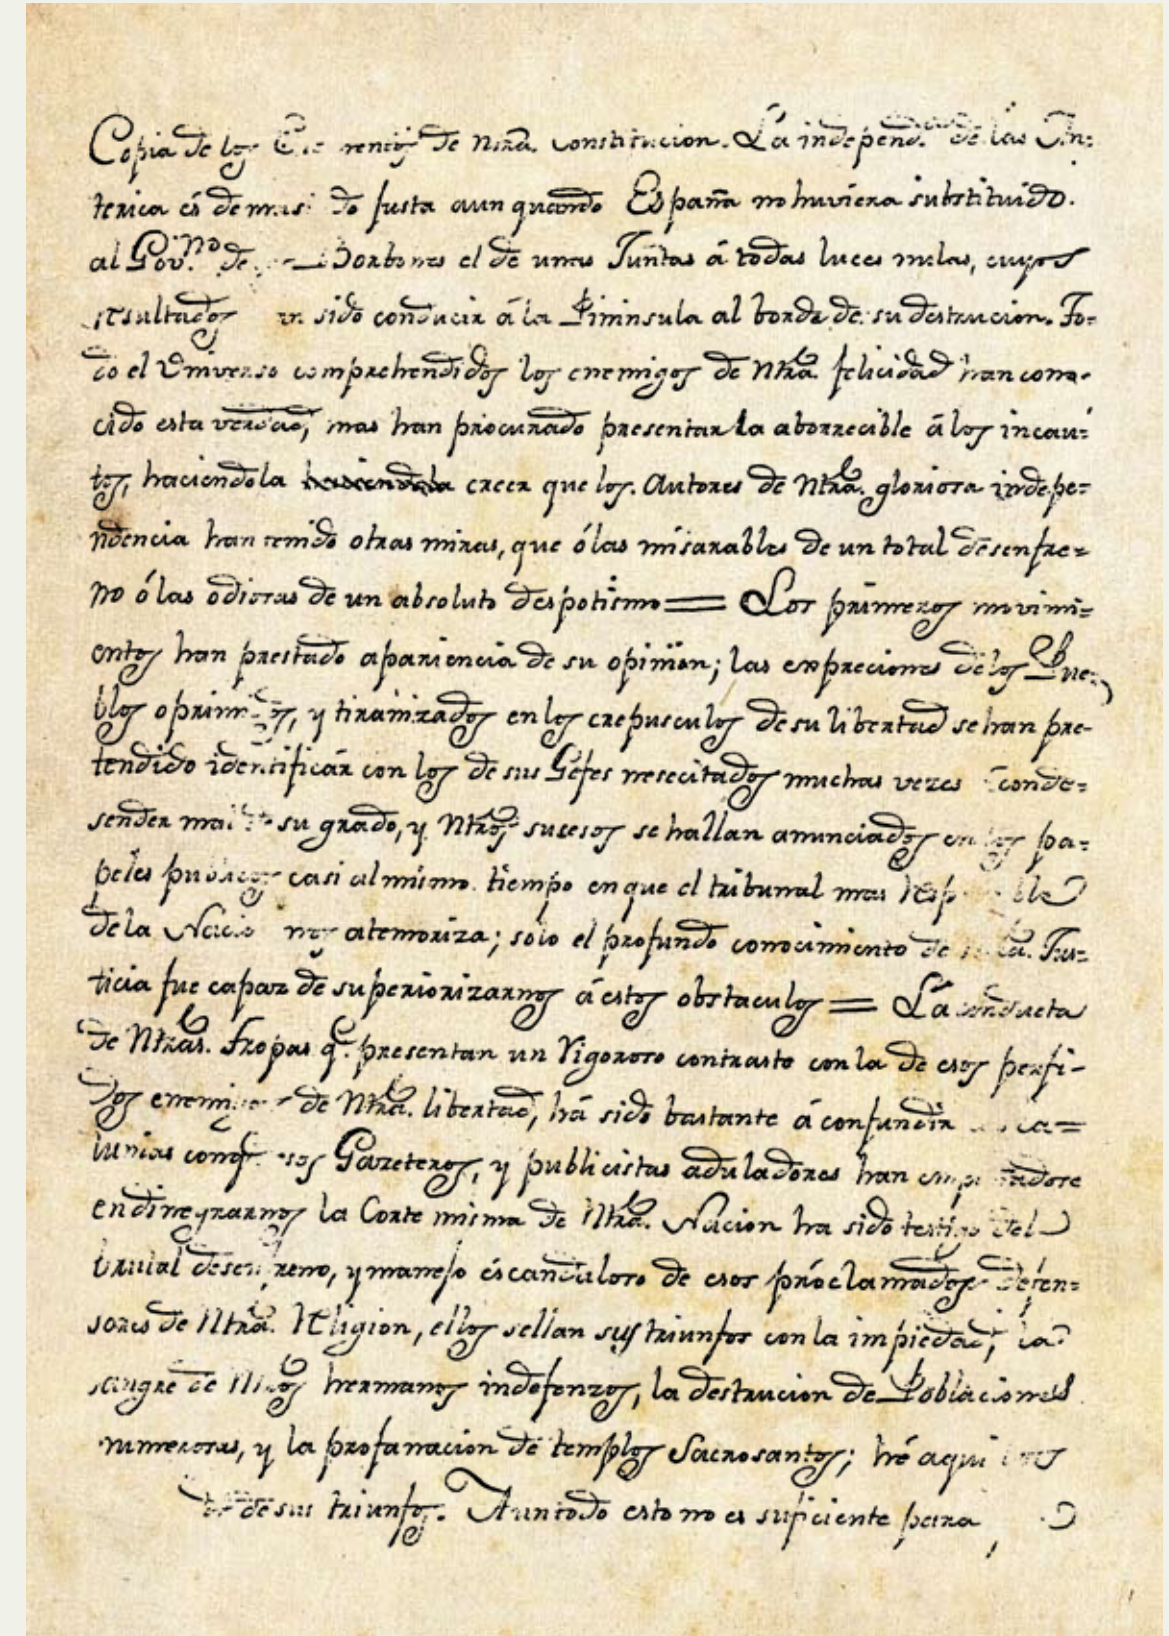 Copia de los de Ntrā. constitucion. La independ.ª de las Ān=
terica és de masi do justa aun quando España no huviera substituido.
al Gov.no de Borbones el de unas Juntas á todas luces malas, cuyos
resultados sido conducir á la Piminsula al borde de su destrucion. To=
do el Universo comprehendidos los enemigos de Ntrā. felicidad han cono-
cido esta verdad, mas han procurado presentarla aborrecible á los incau=
tos, haciendola creer que los. Autores de Ntrā. gloriosa indepe=
ndencia han tenido otras miras, que ó las misarables de un total desenfre=
no ó las odiosas de un absoluto despotismo == Los primeros movimi=
entos han prestado apariencia de su opinion; las expreciones de los Pue=
blos oprimidos, y tiranizados en los crepusculos de su libertad se han pre-
tendido identificár con los de sus Géfes nesecitados muchas vezes á conde=
sender mal su grado, y Ntrōs. sucesos se hallan anunciados en los pa=
peles publicos casi al mismo tiempo en que el tribunal mas
de la Nacion nos atemoriza; solo el profundo conocimiento de Jus=
ticia fue capaz de superiorizarnos á estos obstaculos == La conducta
de Ntrās. Tropas q.e presentan un Vigoroso contrasto con la de esos perfi-
dos enemigos de Ntrā. libertad, há sido bastante á confundir ca=
lunias conq.e Gazeteros, y publicistas aduladores han
endinegrarnos la Corte misma de Ntrā. Nacion ha sido testigo del
brutal desenfreno, y manejo éscanduloso de esos próclamados defen=
sores de Ntrā. Religion, ellos sellan sus triunfos con la impiedad, la
sangre de Ntrōs hermanos indefenzos, la destrucion de Poblaciones
numerosas, y la profanacion de templos Sacrosantos; hé aqui
de sus triunfos. Aun todo esto no es suficiente para